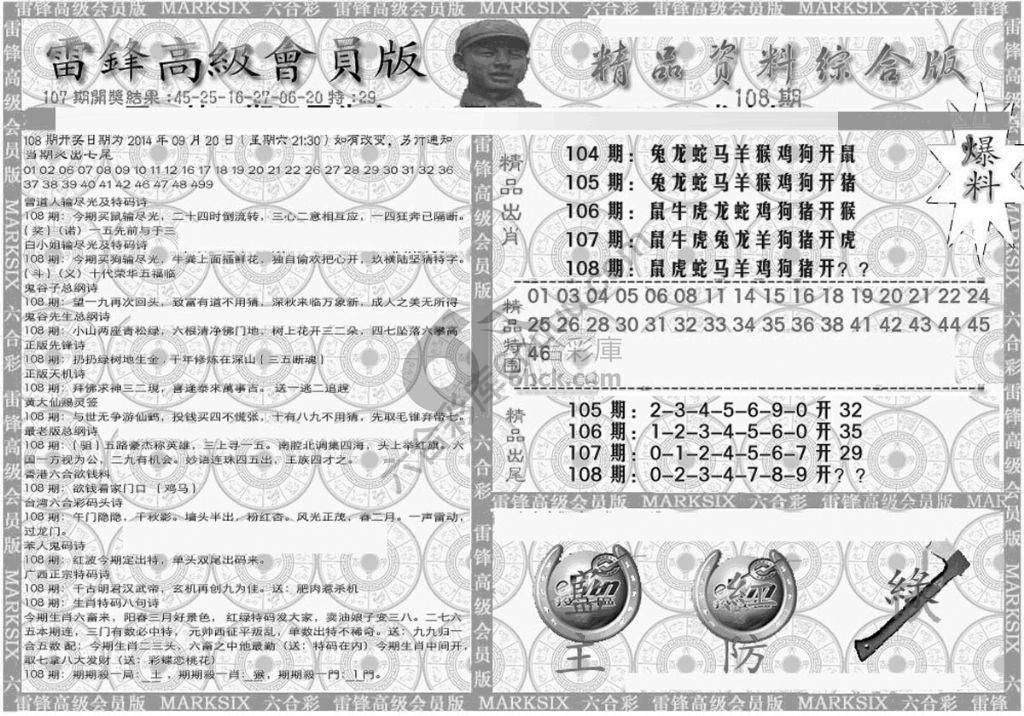 雷锋高级会员版 MARKSIX 六合彩 雷锋高级会员版 MARKSIX 六合彩 雷锋高级会员版 MARKSIX 六合彩 雷锋
雷鋒高級會員版
精品資料綜合版
107期開獎結果:45-25-16-27-06-20特:29
108期
爆料
108期开奖日期为2014年09月20日(星期六21:30)如有改变,另行通知
当期必出七尾
01 02 06 07 08 09 10 11 12 16 17 18 19 20 21 22 26 27 28 29 30 31 32 36
37 38 39 40 41 42 46 47 48 499
曾道人输尽光及特码诗
108期:今期买鼠输尽光,二十四时倒流转,三心二意相互应,一四狂奔已隔断。
{奖}〈诺〉一五先前与于三
白小姐输尽光及特码诗
108期:今期买狗输尽光,牛粪上面插鲜花,独自偷欢把心开,玖横陆坚猜特字。
{斗}〈义〉十代荣华五福临
鬼谷子总纲诗
108期:望一九再次回头,致富有道不用猜,深秋来临万象新,成人之美无所得
鬼谷先生总纲诗
108期:小山两座青松绿,六根清净佛门地,树上花开三二朵,四七坠落六攀高
正版先锋诗
108期:扔扔绿树地生金,千年修炼在深山{三五断魂}
正版天机诗
108期:拜佛求神三二現,喜逢泰來萬事吉。送一逃二追趕
黄大仙赐灵签
108期:与世无争游仙鹤,投钱买四不慌张,十有八九不用猜,先取毛锥弃带七。
最老版总纲诗
108期:{驵}五路豪杰称英雄,三上寻一五。南腔北调集四海,头上举红旗。六
国一方视为公,二九有机会。妙语连珠四五出,王族四才之。
香港六合欲钱料
108期:欲钱看家门口 {鸡马}
台湾六合彩码头诗
108期:午门隐隐,千秋影。墙头半出,粉红杏。风光正茂,春二月。一声雷动,
过龙门。
苯人鬼码诗
108期:红波今期定出特,单头双尾出码来。
广西正宗特码诗
108期:千古明君汉武帝,玄机再创九为佳。送:肥肉惹杀机
108期:生肖特码八句诗
今期生肖六畜来,阳春三月好景色,红绿特码发大家,卖油娘子变三八。二七六
五本期连,三门有数必中特,元帅西征平叛乱,单数出特不稀奇。送:九九归一
合五数 配:今期生肖二三头,六畜之中他最勤(送:特码在内)今期生肖中间开,
取七拿八大发财(送:彩蝶恋桃花)
108期:期期殺一局:土,期期殺一肖:猴,期期殺一門:1門。
精品出肖
104期:兔龙蛇马羊猴鸡狗开鼠
105期:兔龙蛇马羊猴鸡狗开猪
106期:鼠牛虎龙蛇鸡狗猪开猴
107期:鼠牛虎兔龙羊狗猪开虎
108期:鼠虎蛇马羊鸡狗猪开??
精品特围
01 03 04 05 06 08 11 14 15 16 18 19 20 21 22 24
25 26 28 30 31 32 33 34 35 36 38 41 42 43 44 45
46
六合彩庫
6hck.com
精品出尾
105期:2-3-4-5-6-9-0开32
106期:1-2-3-4-5-6-0开35
107期:0-1-2-4-5-6-7开29
108期:0-2-3-4-7-8-9开??
雷锋高级会员版 MARKSIX 六合彩 雷锋高级会员版
主
防
綠
雷锋高级会员版 MARKSIX 六合彩 雷锋高级会员版 MARKSIX 六合彩 雷锋高级会员版 MARKSIX 六合彩 雷锋